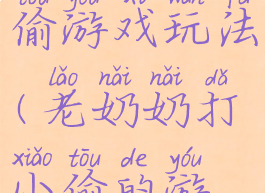 tōu yóu xì wán fǎ
偷游戏玩法
lǎo nǎi nǎi dǎ
(老奶奶打
xiǎo tōu de yóu
小偷的游